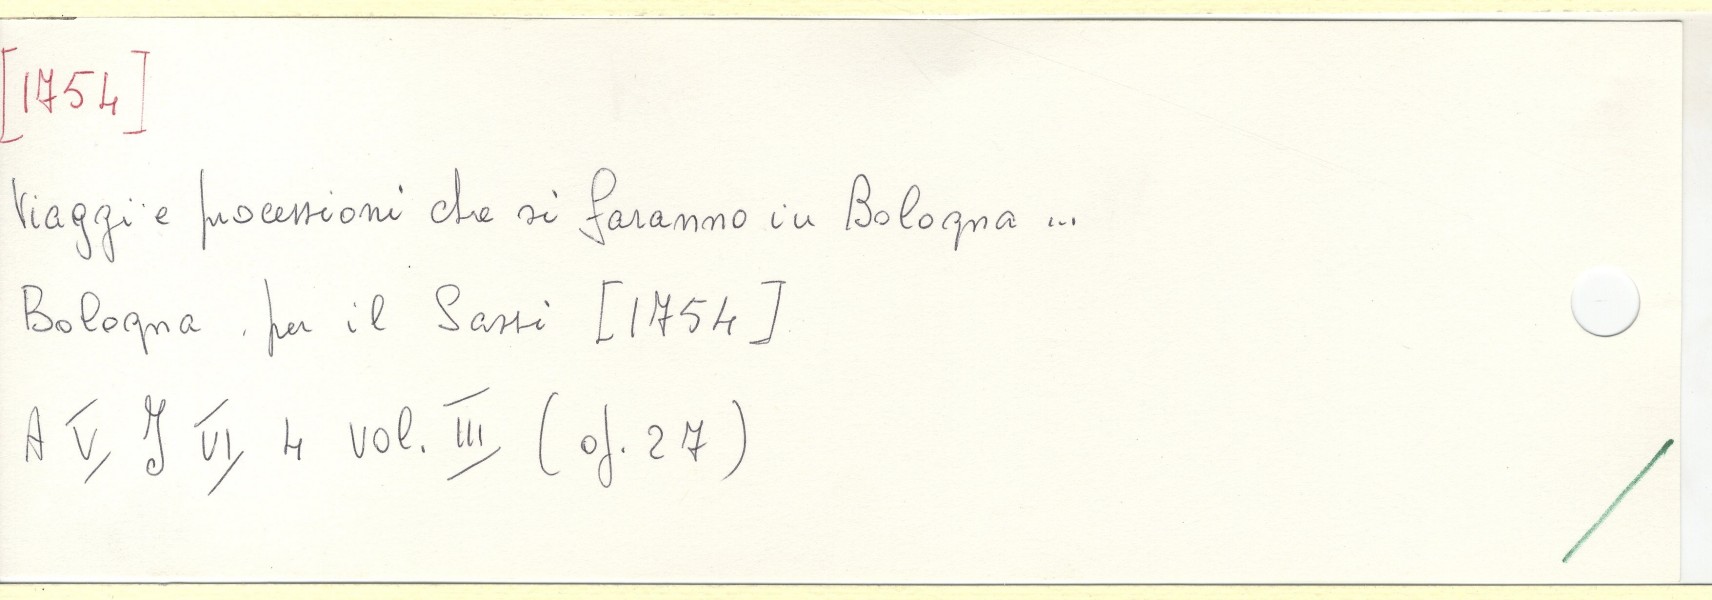 [1754]
Viaggi e processioni che si faranno in Bologna ...
Bologna, per il Sassi [1754]
A V J VI 4 vol. III (of. 27)